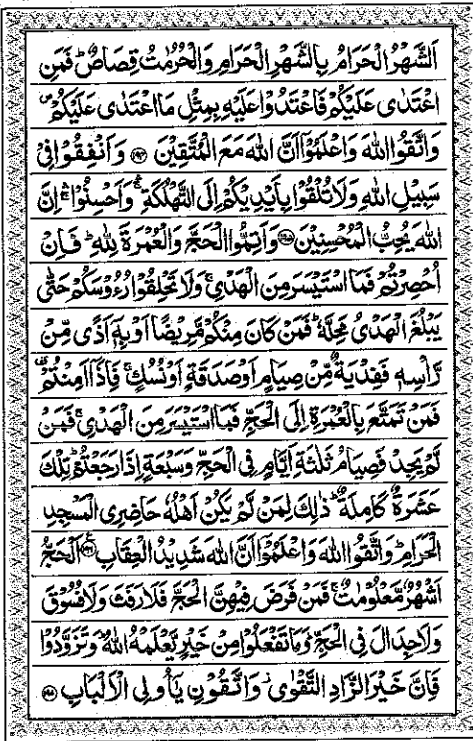 اَلشَّهْرُ الْحَرَامُ بِالشَّهْرِ الْحَرَامِ وَالْحُرُمٰتُ قِصَاصٌ ؕ فَمَنِ
اعْتَدٰى عَلَيْكُمْ فَاعْتَدُوْا عَلَيْهِ بِمِثْلِ مَا اعْتَدٰى عَلَيْكُمْ ۪
وَاتَّقُوا اللّٰهَ وَاعْلَمُوْۤا اَنَّ اللّٰهَ مَعَ الْمُتَّقِيْنَ ﴿۱۹۴﴾ وَاَنْفِقُوْا فِيْ
سَبِيْلِ اللّٰهِ وَلَا تُلْقُوْا بِاَيْدِيْكُمْ اِلَى التَّهْلُكَةِ ۛۚ وَاَحْسِنُوْا ۛۚ اِنَّ
اللّٰهَ يُحِبُّ الْمُحْسِنِيْنَ ﴿۱۹۵﴾ وَاَتِمُّوا الْحَجَّ وَالْعُمْرَةَ لِلّٰهِ ؕ فَاِنْ
اُحْصِرْتُمْ فَمَا اسْتَيْسَرَ مِنَ الْهَدْيِ ۚ وَلَا تَحْلِقُوْا رُءُوْسَكُمْ حَتّٰى
يَبْلُغَ الْهَدْيُ مَحِلَّهٗ ؕ فَمَنْ كَانَ مِنْكُمْ مَّرِيْضًا اَوْ بِهٖۤ اَذًى مِّنْ
رَّاْسِهٖ فَفِدْيَةٌ مِّنْ صِيَامٍ اَوْ صَدَقَةٍ اَوْ نُسُكٍ ۚ فَاِذَاۤ اَمِنْتُمْ ۥ
فَمَنْ تَمَتَّعَ بِالْعُمْرَةِ اِلَى الْحَجِّ فَمَا اسْتَيْسَرَ مِنَ الْهَدْيِ ۚ فَمَنْ
لَّمْ يَجِدْ فَصِيَامُ ثَلٰثَةِ اَيَّامٍ فِي الْحَجِّ وَسَبْعَةٍ اِذَا رَجَعْتُمْ ؕ تِلْكَ
عَشَرَةٌ كَامِلَةٌ ؕ ذٰلِكَ لِمَنْ لَّمْ يَكُنْ اَهْلُهٗ حَاضِرِي الْمَسْجِدِ
الْحَرَامِ ؕ وَاتَّقُوا اللّٰهَ وَاعْلَمُوْۤا اَنَّ اللّٰهَ شَدِيْدُ الْعِقَابِ ﴿۱۹۶﴾ اَلْحَجُّ
اَشْهُرٌ مَّعْلُوْمٰتٌ ۚ فَمَنْ فَرَضَ فِيْهِنَّ الْحَجَّ فَلَا رَفَثَ وَلَا فُسُوْقَ
وَلَا جِدَالَ فِي الْحَجِّ ؕ وَمَا تَفْعَلُوْا مِنْ خَيْرٍ يَّعْلَمْهُ اللّٰهُ ؔ وَتَزَوَّدُوْا
فَاِنَّ خَيْرَ الزَّادِ التَّقْوٰى ؗ وَاتَّقُوْنِ يٰۤاُولِي الْاَلْبَابِ ﴿۱۹۷﴾